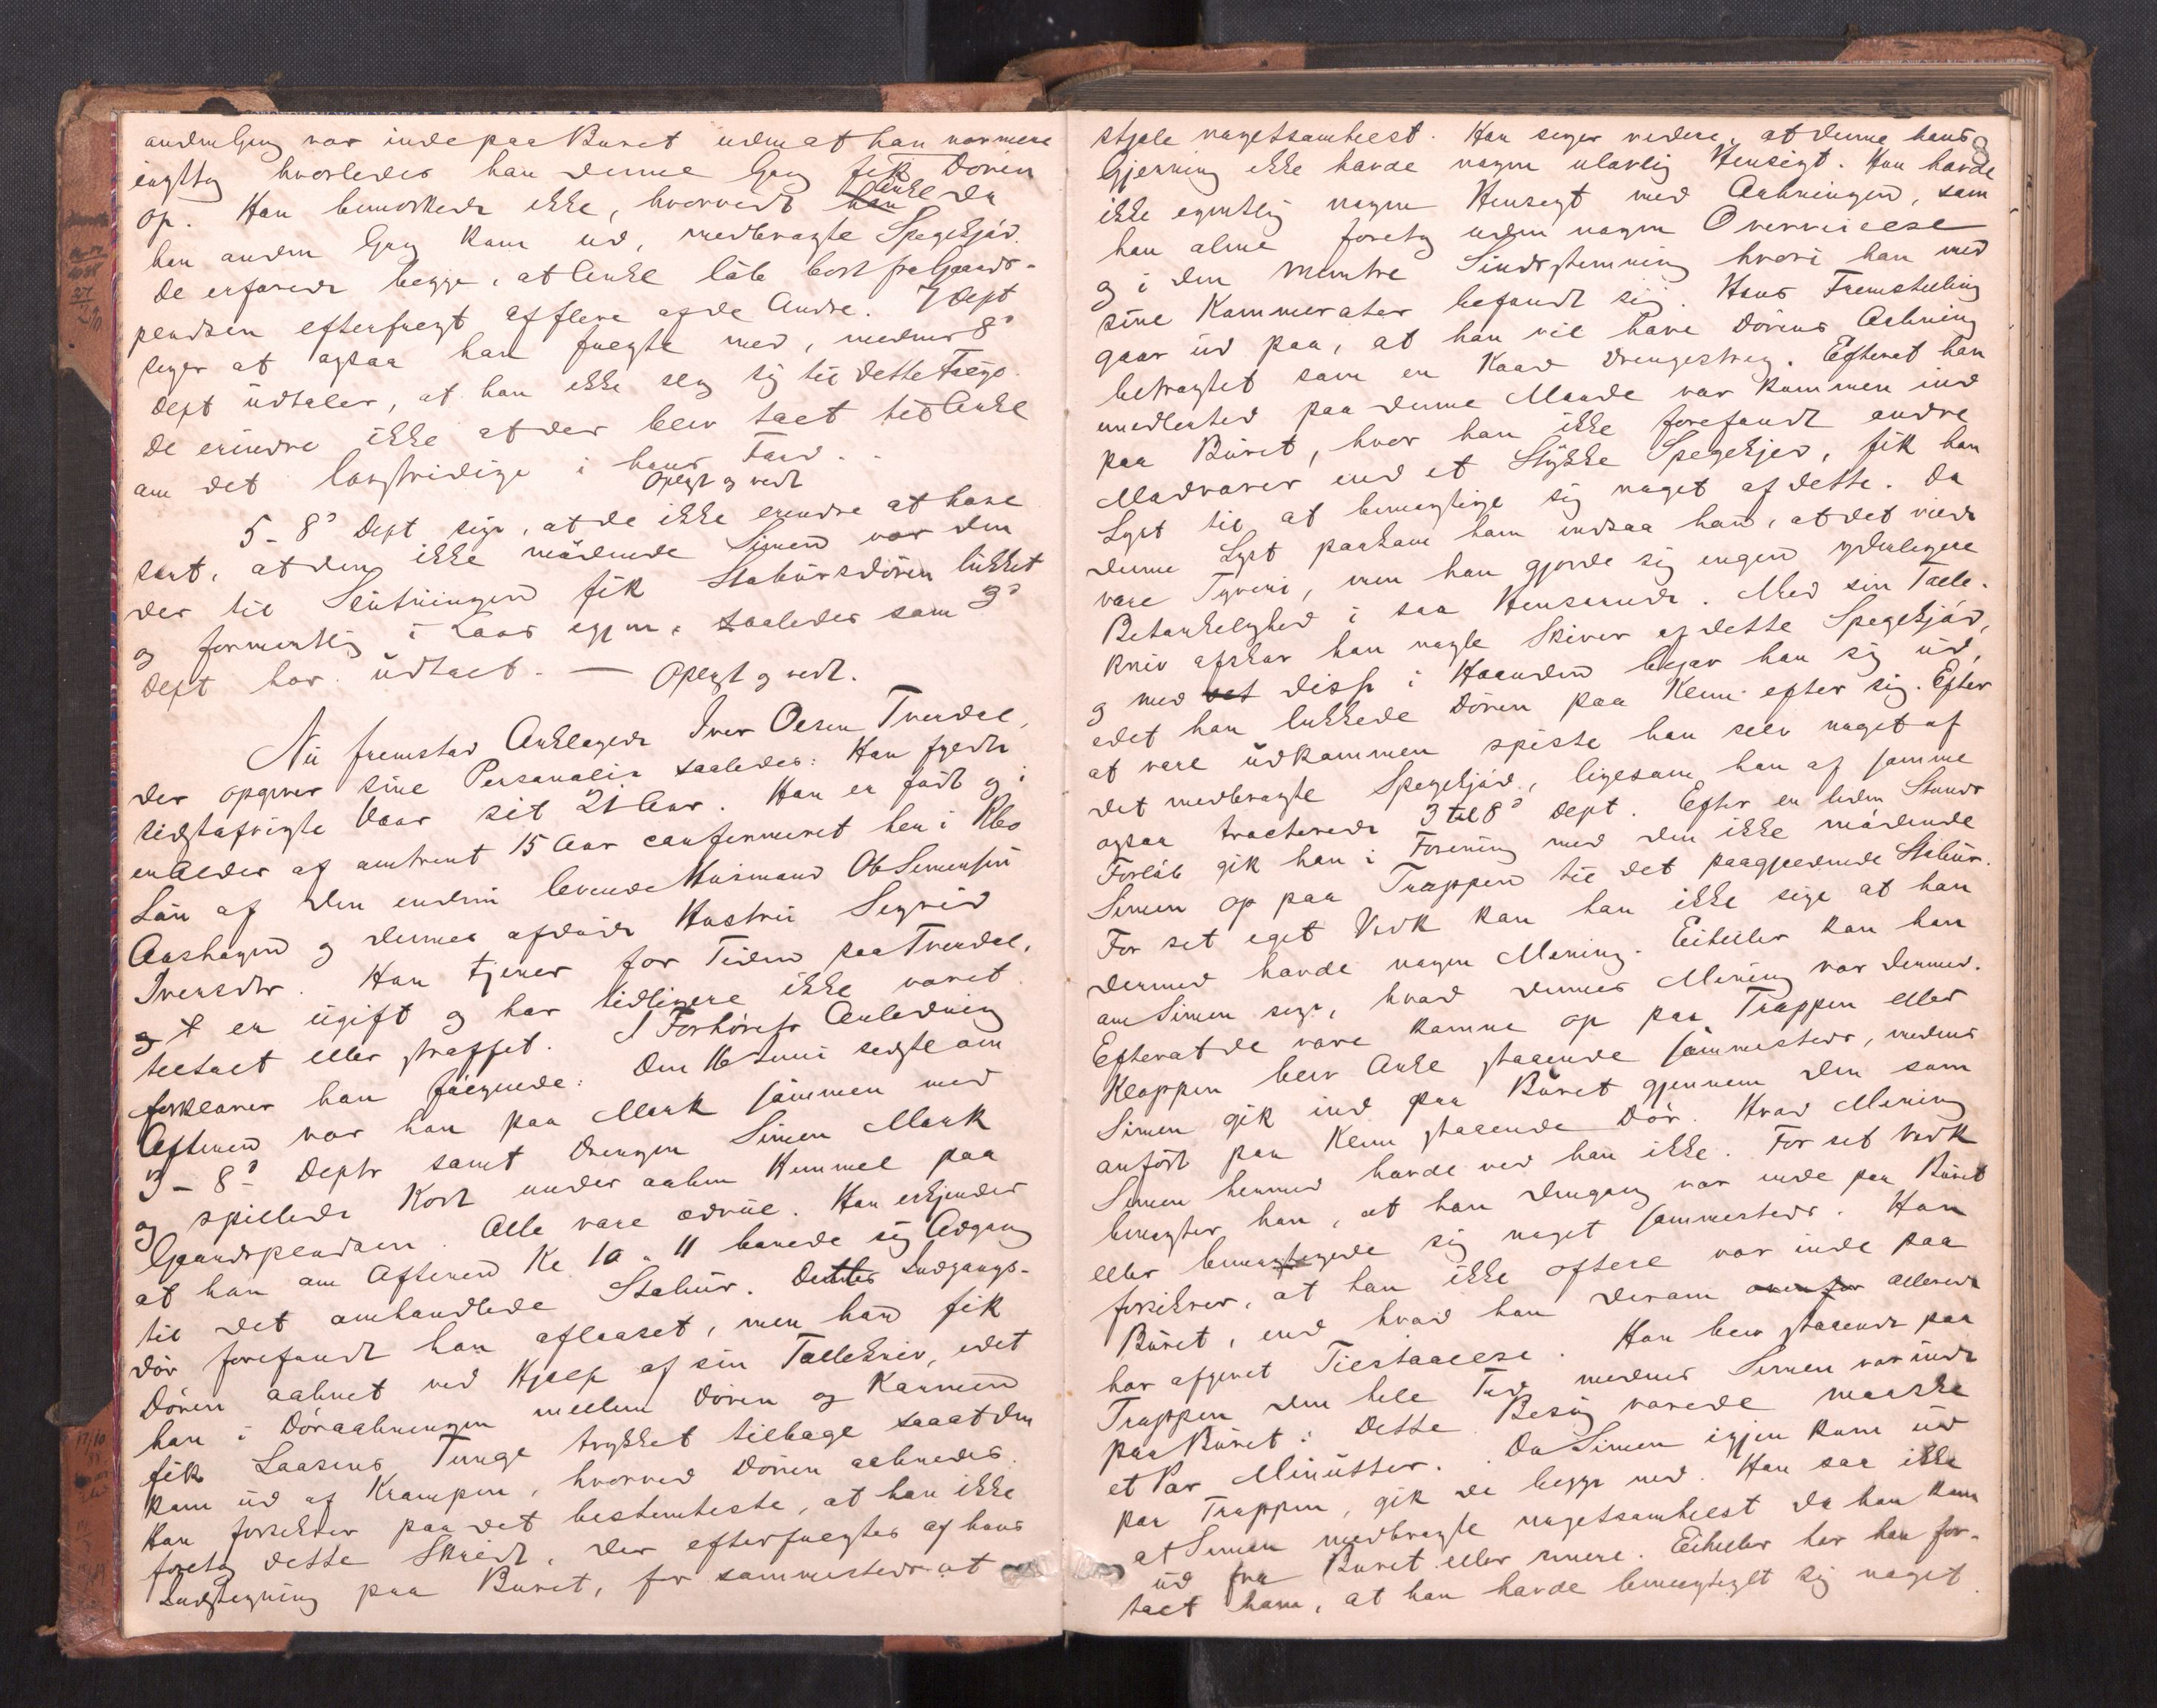 anden Gang var inde paa Buret uden at han nærmere
iagttog hvorledes han denne Gang fik Døren
op. Han bemærkede ikke, hvorvidt Ankl da
han anden Gang kom ud, medbragte Spegekjød.
De erfarede begge, at Ankl løb bort fra Gaards-
pladsen efterfulgt af flere af de Andre. 7 Dept
siger at ogsaa han fulgte med, medens 8de
Dept udtaler, at han ikke slog sig til dette Følge.
De erindre ikke at der blev talt til Ankl
om det lovstridige i hans Færd.
Oplæst og vedt
5 - 8de Dept siger, at de ikke erindre at have
seet, at den ikke mødende Simen var den
der til Slutningen fik Stabursdøren lukket
og formentlig i Laas igjen, saaledes som 3de
Dept har udtalt. — Oplæst og vedt.
Nu fremstod Anklagede Iver Olsen Trendal,
der opgiver sine Personalia saaledes: Han fyldte
sidstafvigte Vaar sit 21 Aar. Han er født og i
en Alder af omtrent 15 Aar confirmeret her i
Søn af den endnu levende Husmand Ole Simensen
Aashagen og dennes afdøde Hustru Sigrid
Iversdtr. Han tjener for Tiden paa Trendal,
og er ugift og har tidligere ikke været
tiltalt eller straffet. I Forhørets Anledning
forklarer han følgende: Den 16 Juni sidstl om
Aftenen var han paa Mork sammen med
3 - 8de Deptr samt Drengen Simen Mork
og spillede Kort under aaben Himmel paa
Gaardspladsen. Alle vare ædrue. Han erkjender
at han om Aftenen Kl 10 a 11 banede sig Adgang
til det omhandlede Stabur. Dettes Indgangs-
dør forefandt han aflaaset, men han fik
Døren aabnet ved Hjælp af sin Tollekniv, idet
han i Døraabningen mellem Døren og Karmen
fik Laasens Tunge trykket tilbage saaat den
kom ud af Krampen, hvorved Døren aabnedes.
Han forsikrer paa det bestemteste, at han ikke
foretog dette Skridt, der efterfulgtes af hans
Indstigning paa Buret, for sammesteds at
stjæle nogetsomhelst. Han siger videre, at denne hans
Gjerning ikke havde nogen ulovlig Hensigt. Han havde
ikke egentlig nogen Hensigt med Aabningen, som
han alene foretog uden nogen Overveielse
og i den muntre Sindsstemning hvori han med
sine Kammerater befandt sig. Hans Fremstilling
gaar ud paa, at han vil have Dørens Aabning
betragtet som en kaad Drengestreg. Efterat han
imidlertid paa denne Maade var kommen ind
paa Buret, hvor han ikke forefandt andre
Madvarer end et Stykke Spegekjød, fik han
Lyst til at bemægtige sig noget af dette. Da
denne Lyst paakom ham indsaa han, at det vilde
være Tyveri, men han gjorde sig ingen yderligere
Betænkelighed i saa Henseende. Med sin Tolle-
kniv afskar han nogle Skiver af dette Spegekjød,
og med disse i Haanden begav han sig ud,
idet han lukkede Døren paa Klem efter sig. Efter
at være udkommen spiste han selv noget af
det medbragte Spegekjød, ligesom han af samme
ogsaa tracterede 3 til 8de Dept. Efter en liden Stunds
Forløb gik han i Forening med den ikke mødende
Simen op paa Trappen til det paagjældende Stabur.
For sit eget Vedk kan han ikke sige at han
dermed havde nogen Mening. Eiheller kan han
om Simen sige, hvad dennes Mening var dermed.
Efterat de vare komne op paa Trappen eller
Kloppen blev Ankl staaende sammesteds, medens
Simen gik ind paa Buret gjennem den som
anført paa Klem staaende Dør. Hvad Mening
Simen hermed havde ved han ikke. For sit Vedk
benegter han, at han dengang var inde paa Buret
eller bemægtigede sig noget sammesteds. Han
forsikrer, at han ikke oftere var inde paa
Buret, end hvad han derom allerede
har afgivet Tilstaaelse. Han blev staaende paa
Trappen den hele Tid medens Simen var inde
paa Buret. Dette Besøg varede maaske
et Par Minutter. Da Simen igjen kom ud
paa Trappen, gik de begge ned. Han saa ikke
at Simen medbragte nogetsomhelst da han kom
ud fra Buret eller senere. Eiheller har han for-
talt ham, at han havde bemægtiget sig noget.